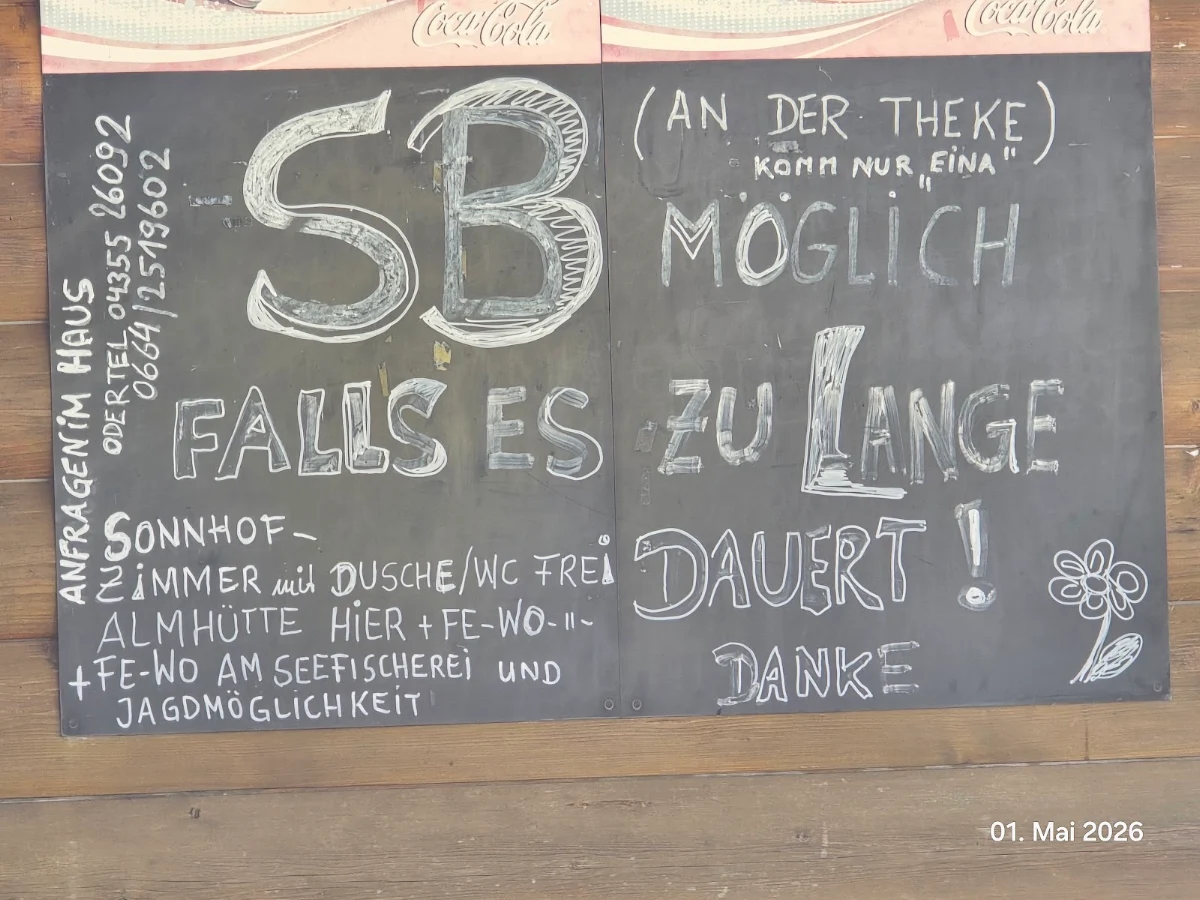 Coca-Cola
Coca-Cola
ANFRAGEN iM HAUS
ODER TEL 04355 26092
0664/2519602
SB
(AN DER THEKE)
KOMM NUR „EINA"
MÖGLiCH
FALLS ES ZU LANGE
DAUERT !
DANKE
SONNHOF-
ZiMMER mit DUSCHE/WC FREi
ALMHÜTTE HiER + FE-WO-"-
+FE-WO AM SEEFiSCHEREi UND
JAGDMÖGLiCHKEiT
01. Mai 2026